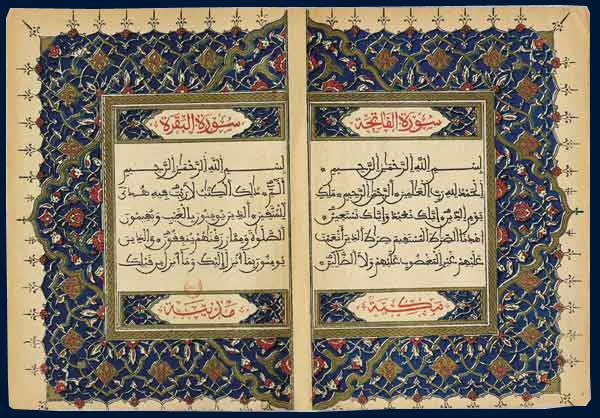 سورة الفاتحة
بسم الله الرحمن الرحيم
الحمد لله رب العالمين الرحمن الرحيم ملك
يوم الدين إياك نعبد وإياك نستعين
اهدنا الصراط المستقيم صراط الذين أنعمت
عليهم غير المغضوب عليهم ولا الضالين
مكية
سورة البقرة
بسم الله الرحمن الرحيم
الم ذلك الكتب لا ريب فيه هدى
للمتقين الذين يومنون بالغيب ويقيمون
الصلوة ومما رزقنهم ينفقون والذين
يومنون بما أنزل إليك وما أنزل من قبلك
مدنية